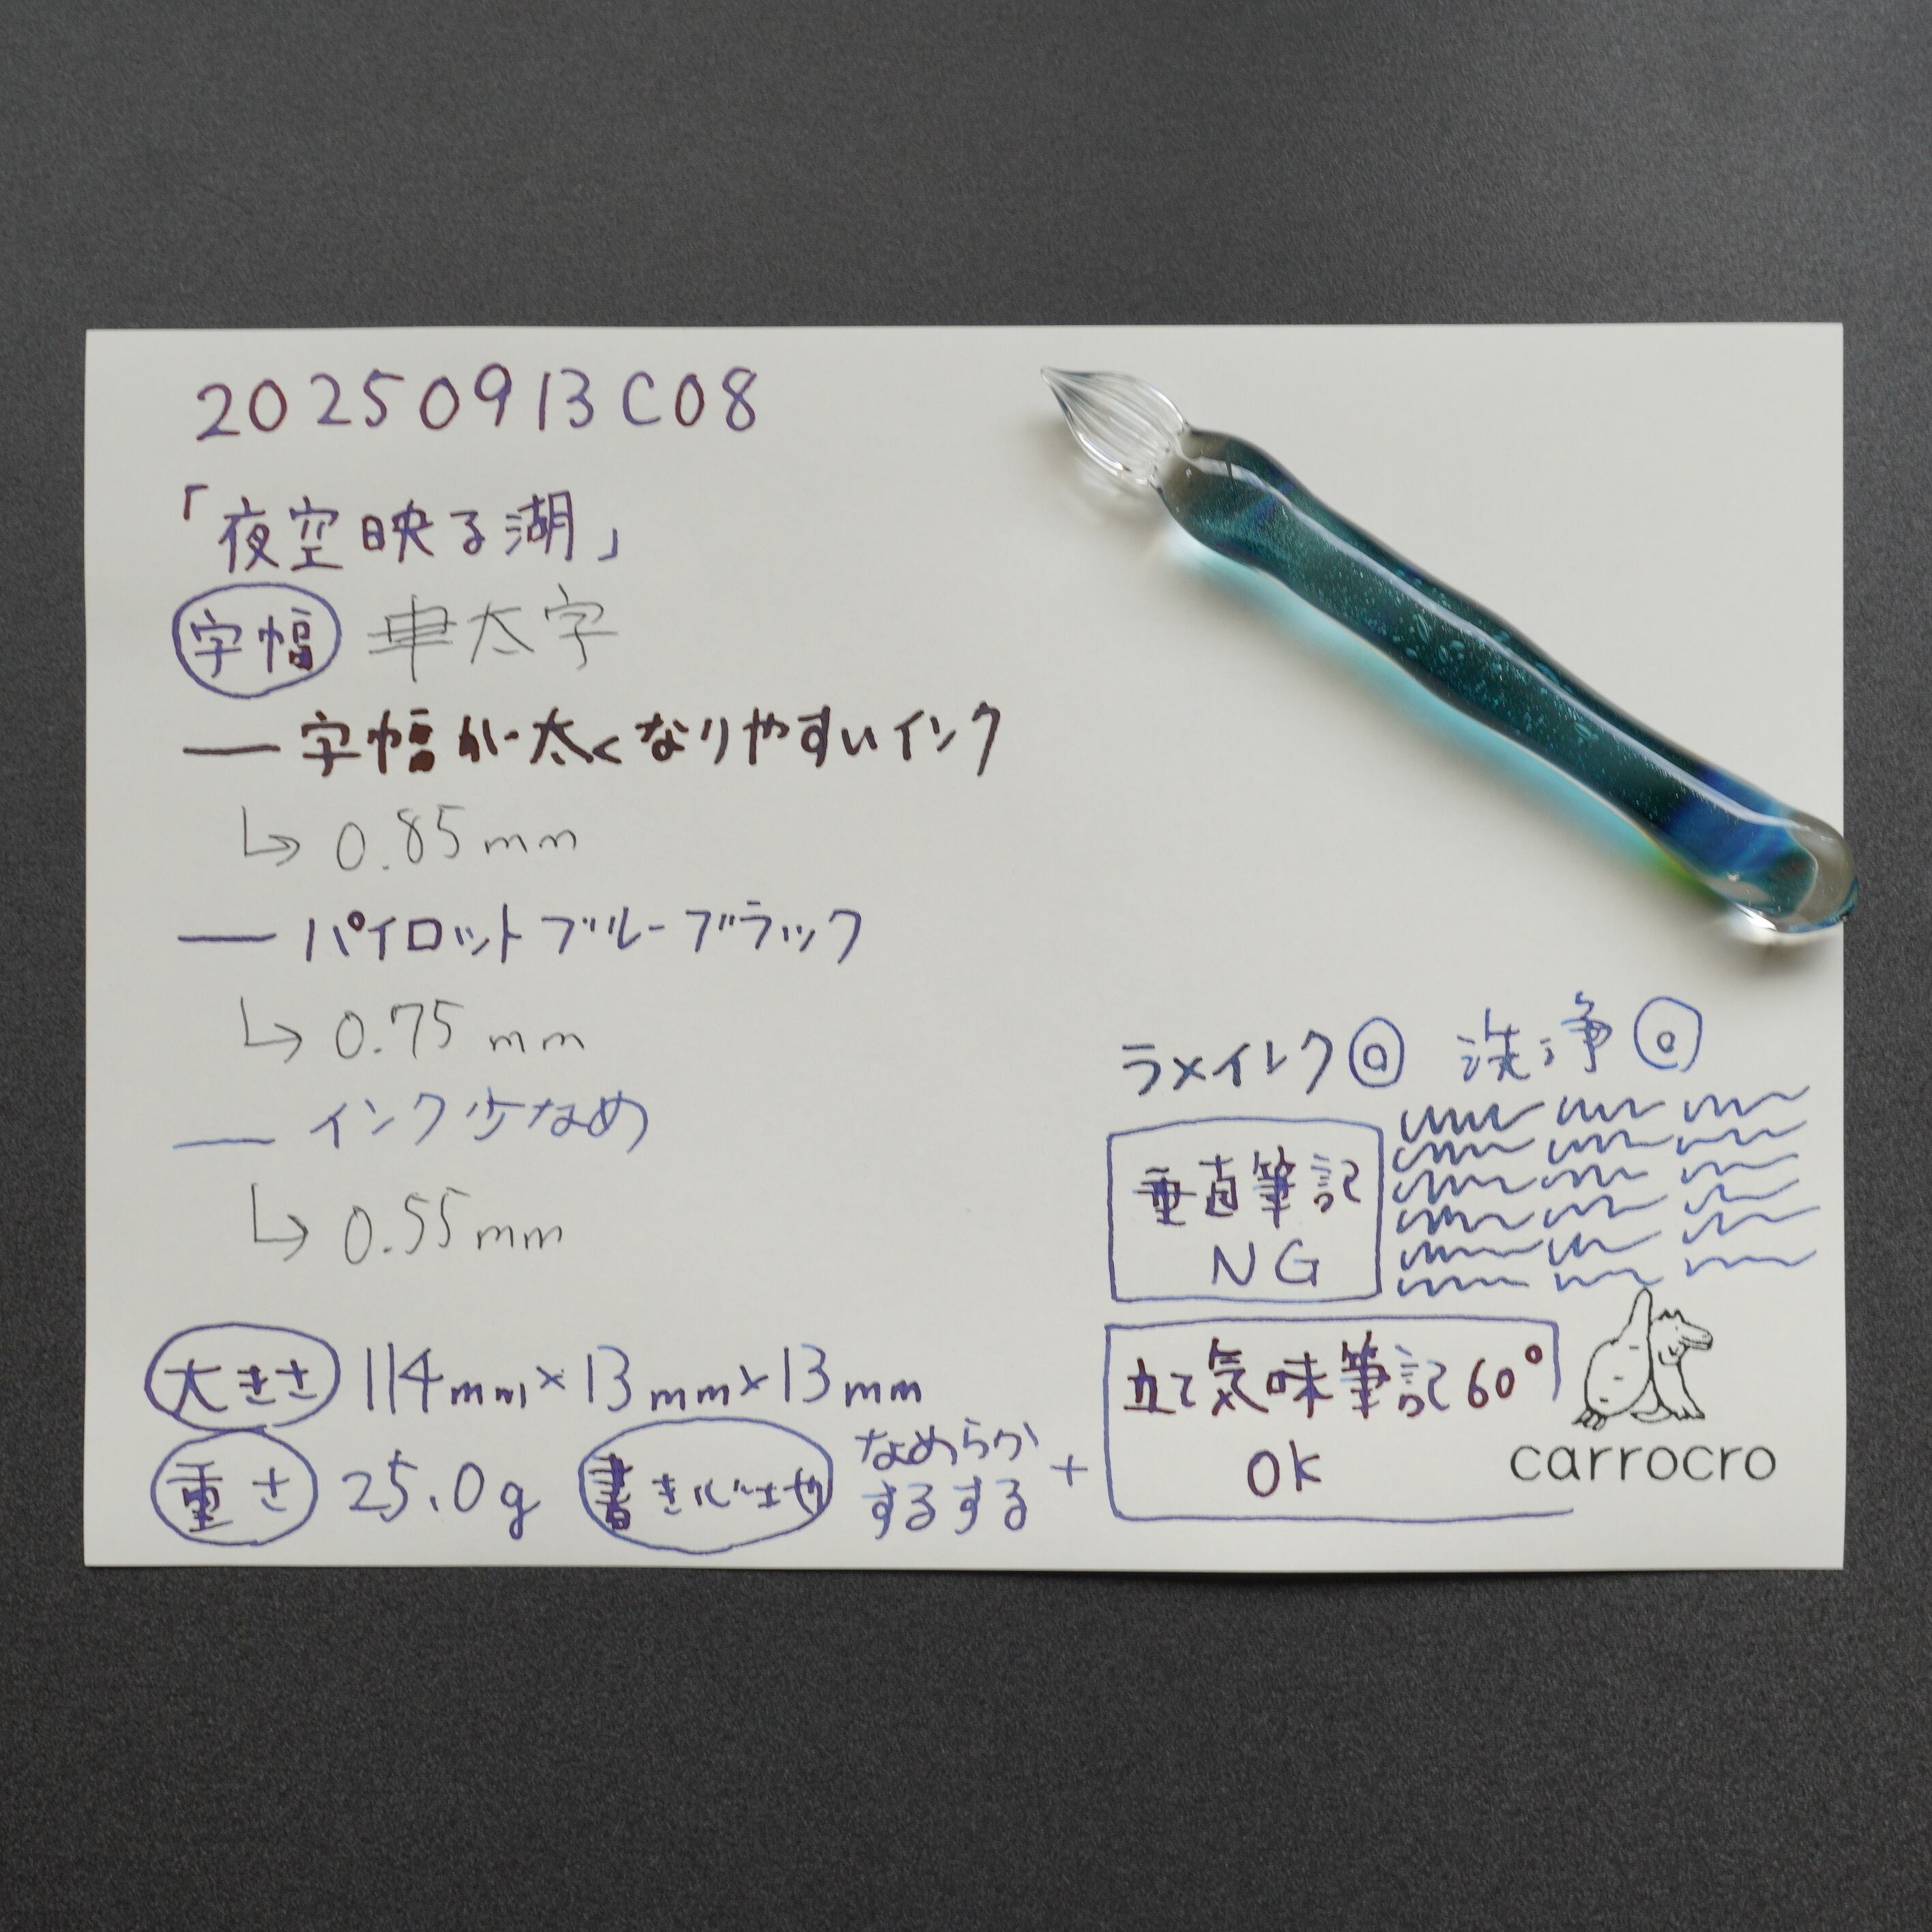 20250913C08
「夜空映る湖」
字幅 太字
字幅が太くなりやすいインク
0.85mm
パイロットブルーブラック
0.75mm
インク少なめ
0.55mm
大きさ 114mm×13mm×13mm
重さ 25.0g
書き心地 なめらか
するする +
ラメインク◎ 洗浄◎
垂直筆記
NG
立て気味筆記60°
OK
carrocro